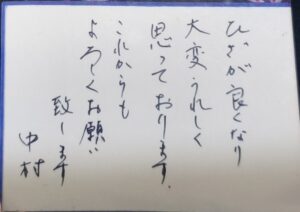 ひざが良くなり
大変うれしく
思っております.
これからも
よろしくお願い
致します
中村